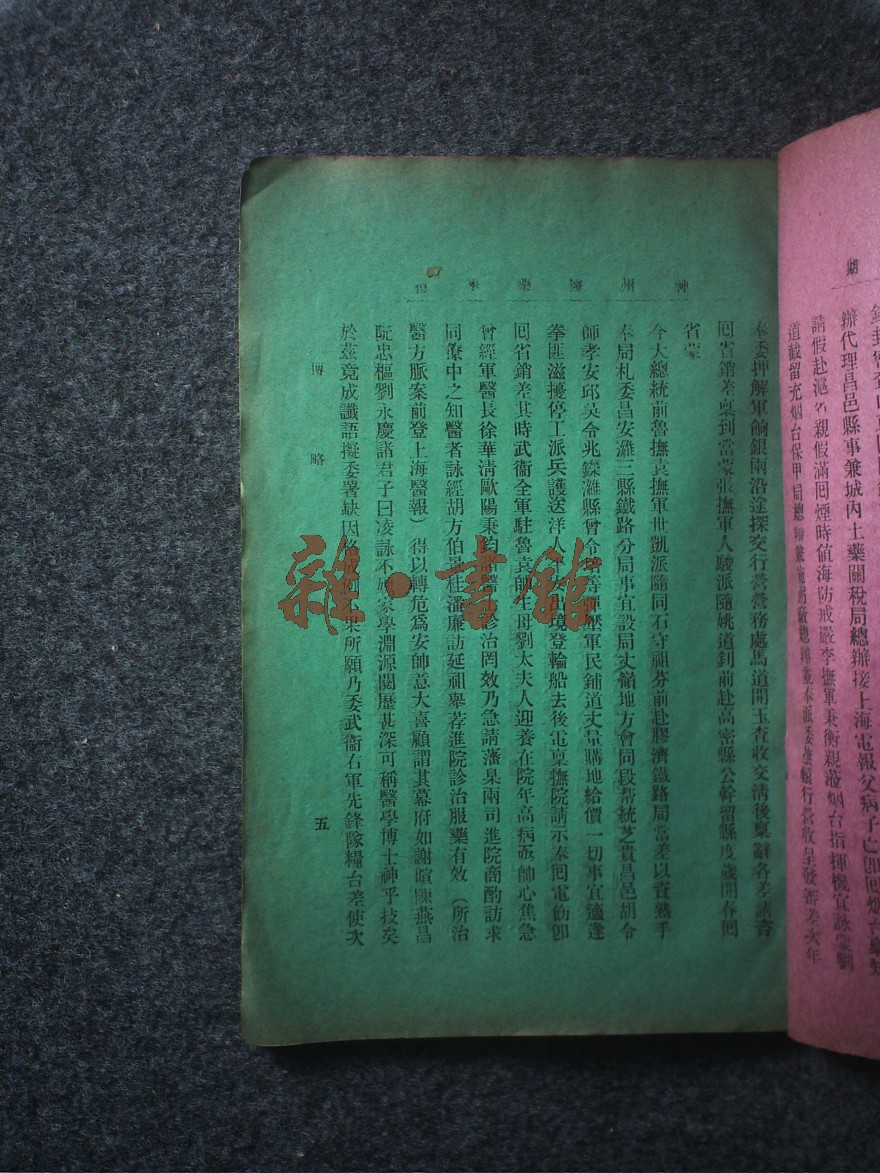 神州醫藥學報
奉委押解軍餉銀兩沿途探交行營營務處馬道開玉查收交清後稟辭各差請咨
回省銷差稟到當蒙張撫軍人駿派隨姚道到前赴高密縣公幹留縣度歲開春回
省蒙
今大總統前魯撫袁撫軍世凱派隨同石守祖芬前赴膠濟鐵路局當差以資熱手
奉局札委昌安濰三縣鐵路分局事宜設局丈嶺地方會同段幫統芝貴昌邑胡令
師孝安邱吳令兆鑅濰縣曾令 等彈壓軍民鋪道丈量購地給價一切事宜適逢
拳匪滋擾停工派兵護送洋人 出境登輪船去後電稟撫院請示奉回電飭卽
回省銷差其時武衞全軍駐魯袁帥生母劉太夫人迎養在院年高病亟帥心焦急
曾經軍醫長徐華清歐陽秉鈞 醫 診治罔效乃急請藩臬兩司進院商酌訪求
同僚中之知醫者詠經胡方伯景桂潘廉訪延祖舉荐進院診治服藥有效（所治
醫方脈案前登上海醫報）得以轉危爲安帥意大喜顧謂其幕府如謝暄陳燕昌
阮忠樞劉永慶諸君子曰凌詠不 家學淵源閱歷甚深可稱醫學博士神乎技矣
於茲竟成讖語擬委署缺因 例 果所願乃委武衞右軍先鋒隊糧台差使次
傳略
五
辦代理昌邑縣事兼城內土藥關稅局總辦接上海電報父病子亡卽回烟台稟知
請假赴滬省親假滿回煙時值海防戒嚴李撫軍秉衡親蒞烟台指揮機宜詠蒙劉
道截留充烟台保甲局總辦兼施粥廠總辦旋奉派委撫轅行營收呈發審差次年
雜·書館